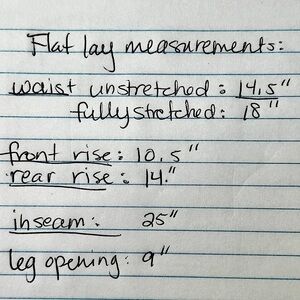 Flat lay measurements:
waist unstretched: 14.5"
fully stretched: 18"
front rise: 10.5"
rear rise: 14."
inseam: 25"
leg opening: 9"